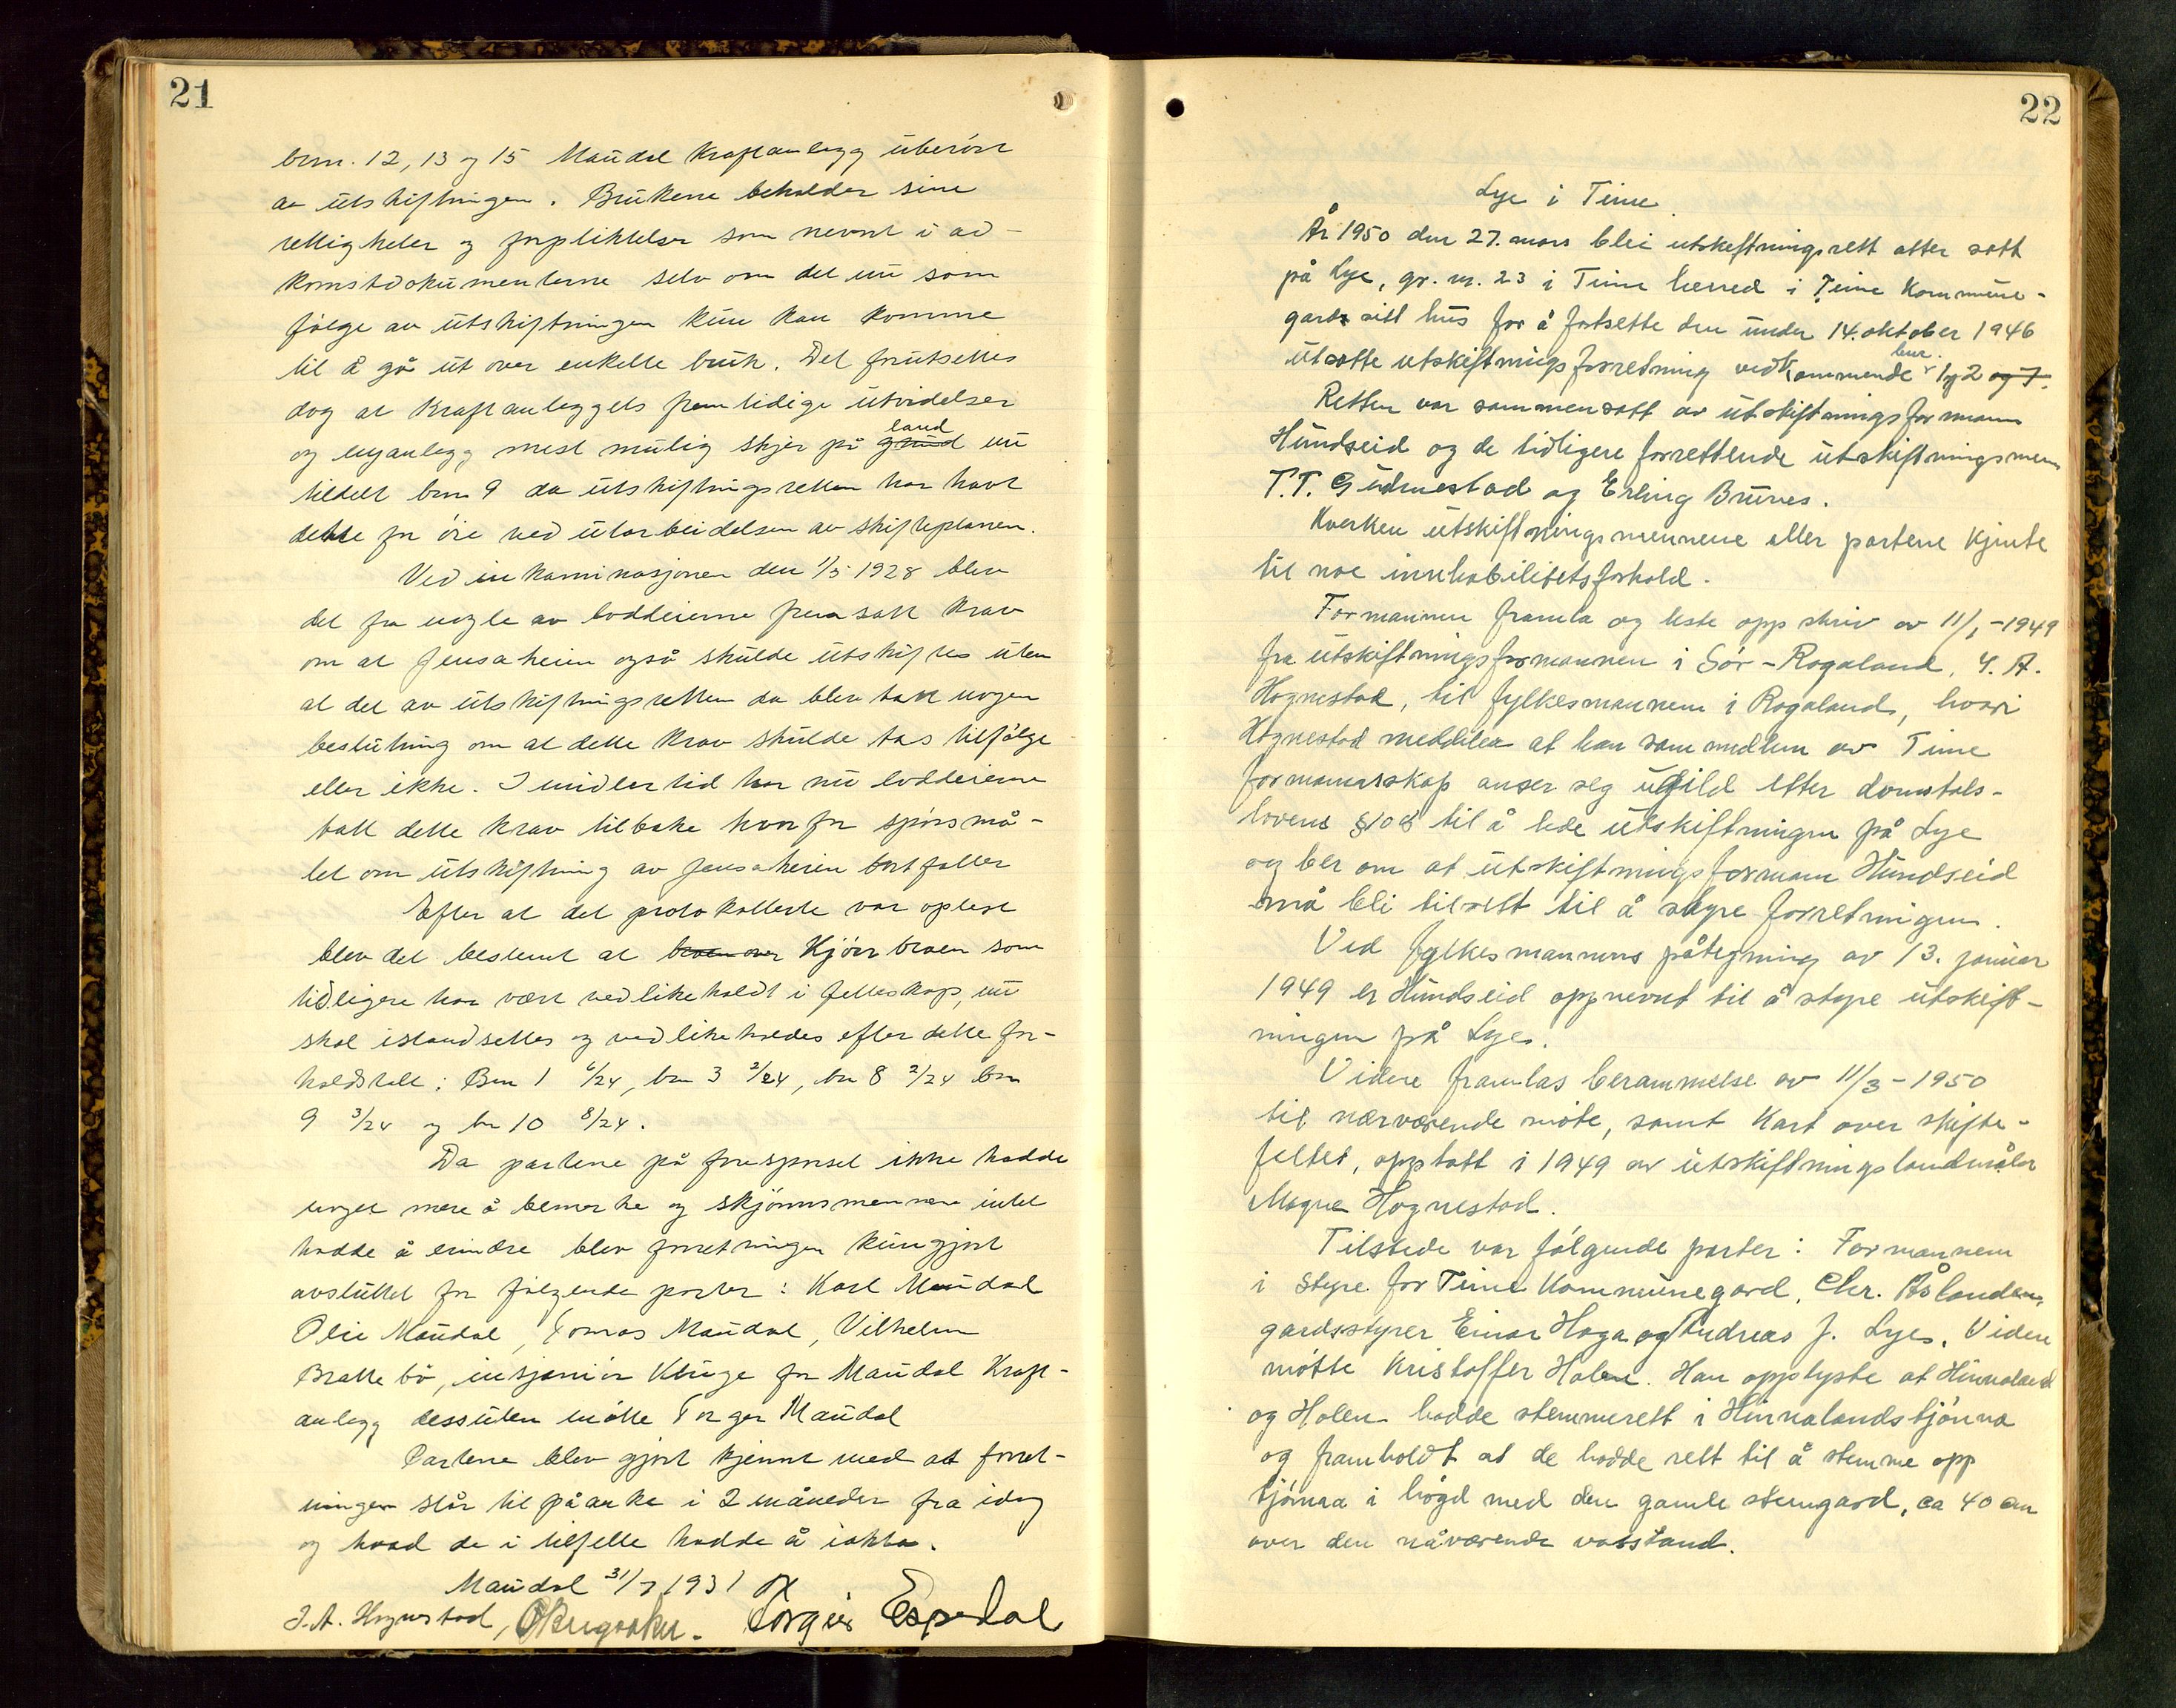 21
brnr. 12, 13 og 15 Maudal Kraftanlegg uberört
av utskiftningen. Brukerne beholder sine
rettigheter og forpliktelser som nevnt i ad-
komstdokumenterne selv om det nu som
fölge av utskiftningen kun kan komme
til å gå ut over enkelte bruk. Det forutsettes
dog at Kraftanleggets fremtidige utvidelser
og nyanlegg mest mulig skjer på grund land nu
tildelt brnr 9 da utskiftningsretten har havt
dette for öie ved utarbeidelsen av skifteplanen.
Ved inkaminasjonen den 1/5 1928 blev
det fra nogle av loddeierne fremsatt krav
om at Jensaheien også skulde utskiftes uten
at det av utskiftningsretten da blev tatt nogen
beslutning om at dette krav skulde tas tilfölge
eller ikke. Imidlertid har nu loddeierne
tatt dette krav tilbake hvorfor spörsmå-
let om utskiftning av Jensaheien bortfaller
Efter at det protokollerte var oplest
blev det bestemt at broen over Kjörr broen som
tidligere har vært vedlikeholdt i felleskap, nu
skal istandsettes og vedlikeholdes efter dette for-
holdstall: Bnr 1 6/24, bnr 3 2/24, bnr 8 2/24 bnr
9 3/24 og bnr 10 8/24.
Da partene på forespörsel ikke hadde
noget mere å bemerke og skjönnsmennene intet
hadde å erindre blev forretningen kungjort
avsluttet for fölgende parter: Karl Maudal
Olie Maudal, Tomas Maudal, Vilhelm
Brattebö, insjeniör Kluge for Maudal Kraft-
anlegg dessuten mötte Torger Maudal
Partene blev gjort kjennt med at forret-
ningen står til påanke i 2 måneder fra idag
og hvad de i tilfelle hadde å iakta.
Maudal 31/7 1931
J. A. Hognestad, Torgeir Espedal
22
Lye i Time
År 1950 den 27. mars blei utskiftningsrett atter satt
på Lye, gr. nr. 23 i Time herred i Time Kommune-
gards sitt hus for å fortsette den under 14. oktober 1946
utsatte utskiftningsforretning vedkommende bnr. 1 og 2 og 7.
Retten var sammensatt av utskiftningsformann
Hundseid og de tidligere forrettende utskiftningsmenn
T. T. Gudmestad og Erling Brunes.
Hverken utskiftningsmennene eller partene kjente
til noe innhabilitetsforhold.
Formannen framla og leste opp skriv av 11/1-1949
fra utskiftningsformannen i Sör-Rogaland, Y. A.
Hognestad, til fylkesmannen i Rogaland, hvori
Hognestad meddeler at han som medlem av Time
formannskap anser seg ugild etter domstols-
lovens §108 til å lede utskiftningen på Lye
og ber om at utskiftningsformann Hundseid
må bli tilsatt til å styre forretningen.
Ved fylkesmannens påtegning av 13. januar
1949 er Hundseid oppnevnt til å styre utskift-
ningen på Lye.
Videre framlas berammelse av 11/3-1950
til nærværende möte, samt kart over skifte-
feltet, opptatt i 1949 av utskiftningslandmåler
Magne Hognestad.
Tilstede var fölgende parter: Formannen
i styre for Time Kommunegard, Chr. Åslandens,
gardsstyrer Einar Haga og Andreas J. Lye. Videre
mötte Kristoffer Holen. Han opplyste at Hinnaland
og Holen hadde stemmerett i Hinnalandstjönna
og framholdt at de hadde rett til å stemme opp
tjönna i högd med den gamle stemgard, ca 40 cm
over den nåværende vasstand.